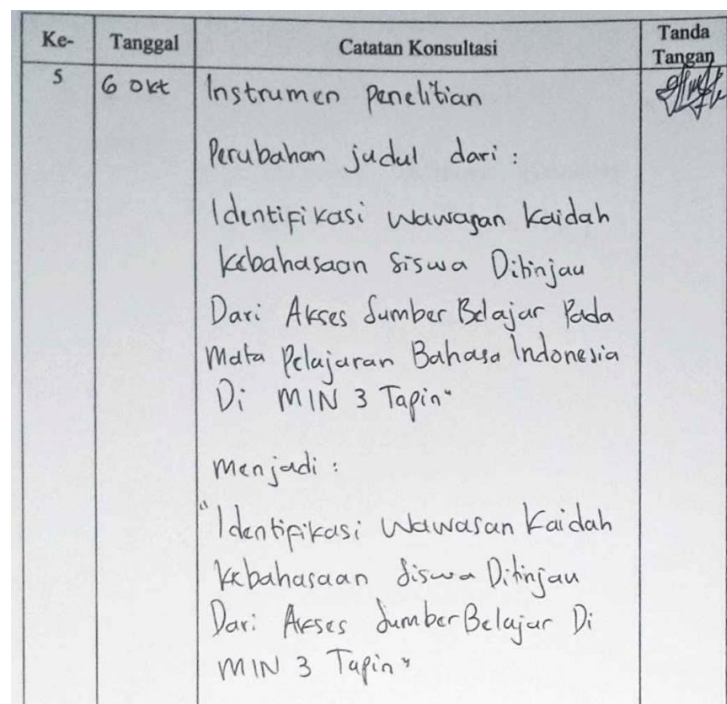 Ke- Tanggal Catatan Konsultasi Tanda Tangan
5 6 Okt Instrumen Penelitian
Perubahan judul dari :
Identifikasi Wawasan Kaidah
Kebahasaan Siswa Ditinjau
Dari Akses Sumber Belajar Pada
Mata Pelajaran Bahasa Indonesia
Di MIN 3 Tapin"
menjadi :
"Identifikasi Wawasan Kaidah
Kebahasaan Siswa Ditinjau
Dari Akses Sumber Belajar Di
MIN 3 Tapin"